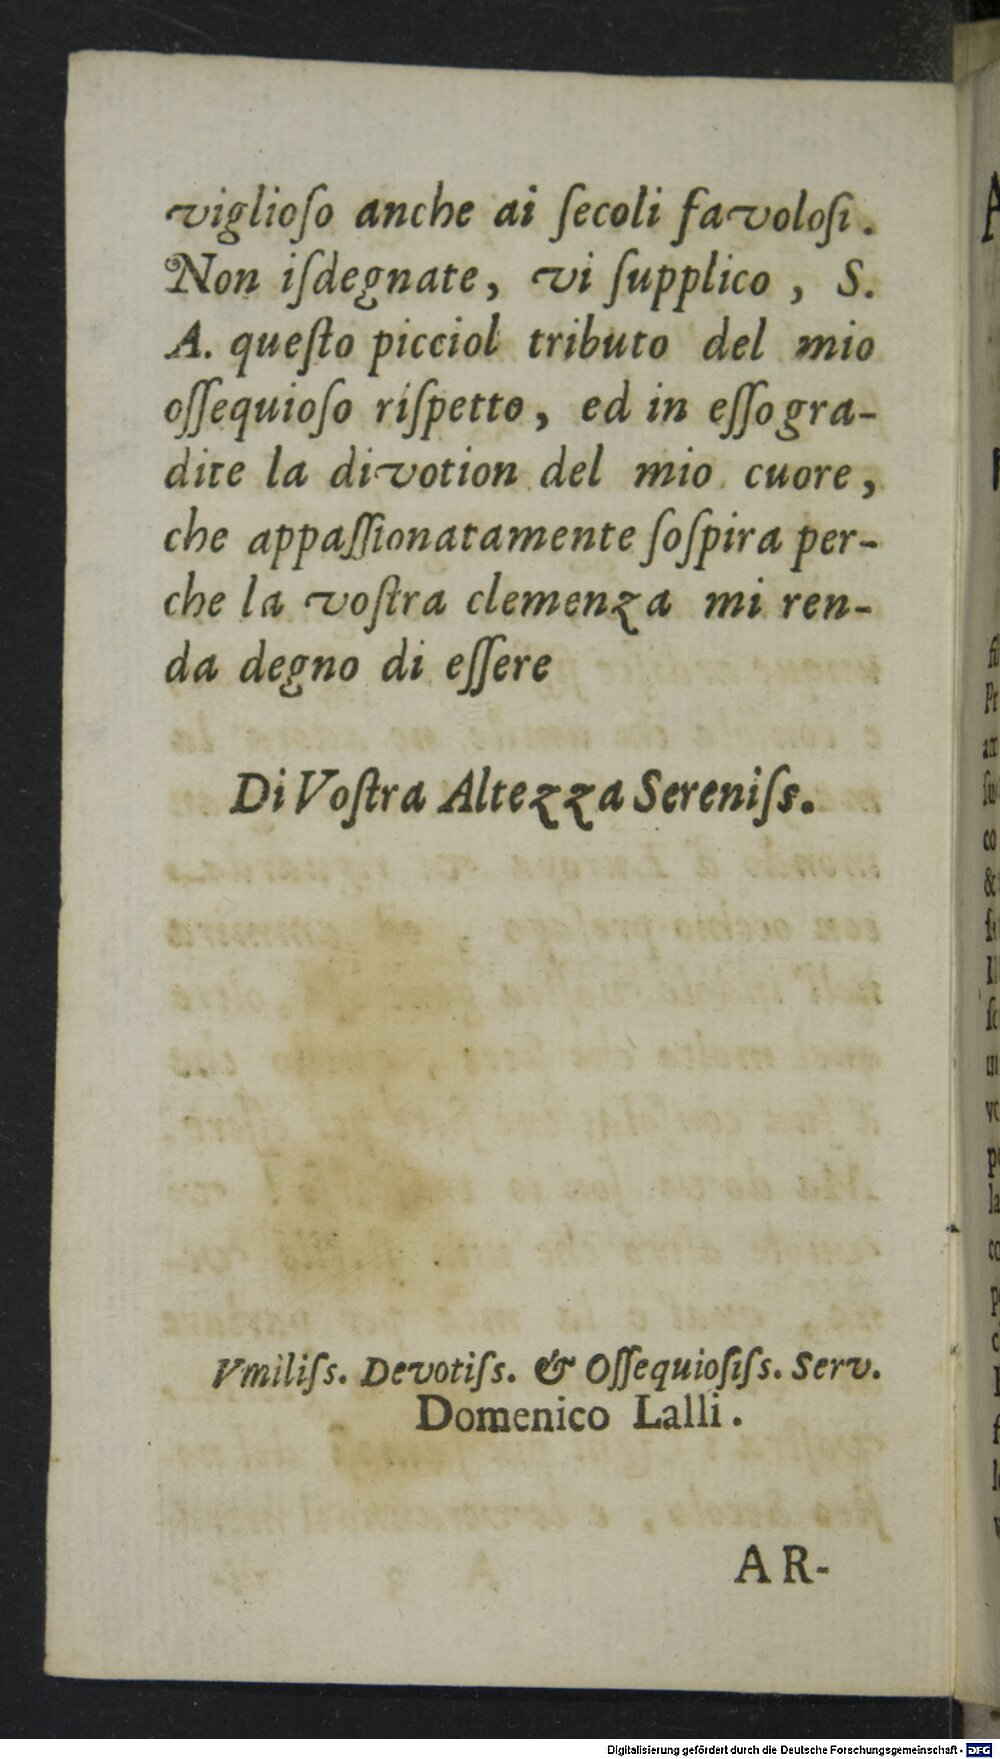 viglioſo anche ai ſecoli favoloſi.
Non iſdegnate, vi ſupplico, S.
A. queſto picciol tributo del mio
oſſequioſo riſpetto, ed in eſſo gra-
dite la divotion del mio cuore,
che appaſſionatamente ſoſpira per-
che la voſtra clemenza mi ren-
da degno di eſſere
Di Voſtra Altezza Sereniſs.
Vmiliſs. Devotiſs. & Oſſequioſiſs. Serv.
Domenico Lalli.
AR-
Digitalisierung gefördert durch die Deutsche Forschungsgemeinschaft - DFG